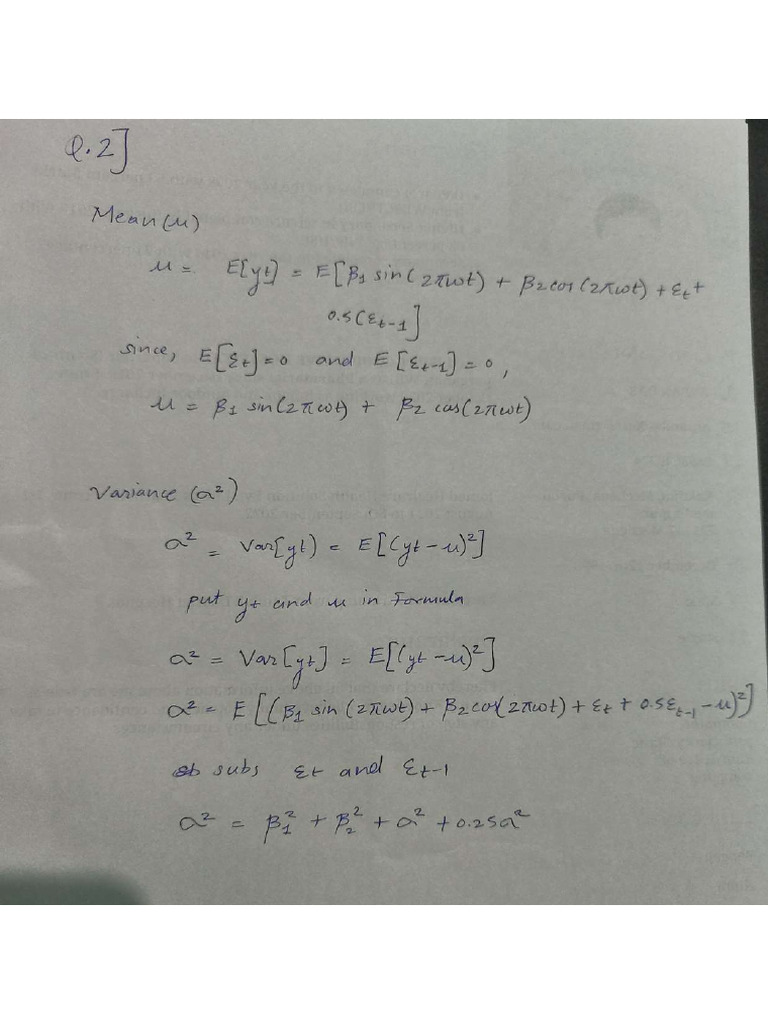 Q.2]
Mean(μ)
μ = E[yt] = E[β1 sin(2πωt) + β2cos(2πωt) + εt +
0.5(εt-1]
since, E[εt]=0 and E[εt-1]=0,
μ = β1 sin(2πωt) + β2 cos(2πωt)
Variance (σ²)
σ² = Var[yt) = E[(yt-μ)²]
put yt and μ in Formula
σ² = Var[yt] = E[(yt-μ)²]
σ² = E[(β1 sin(2πωt) + β2cos(2πωt) + εt + 0.5εt-1 - μ)²]
subs εt and εt-1
σ² = β1² + β2² + σ² + 0.25σ²